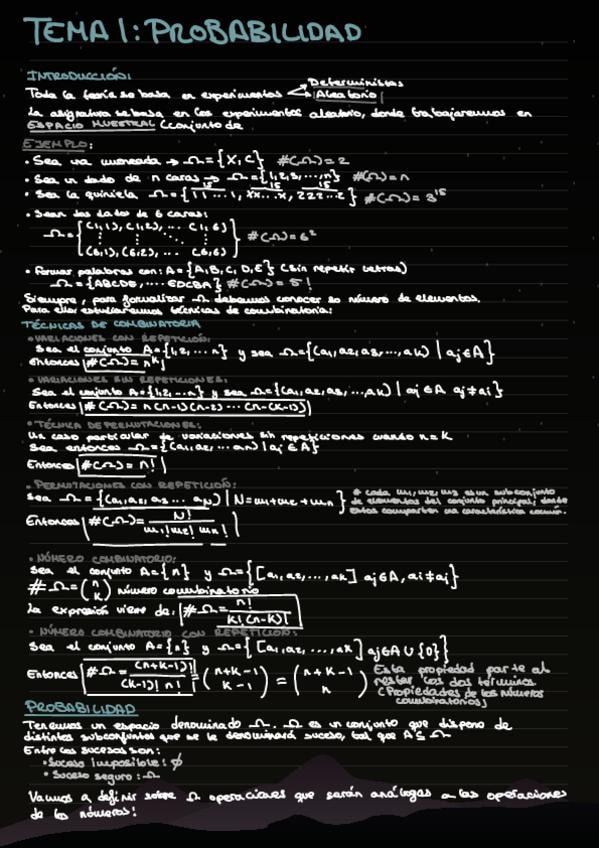 TEMA 1: PROBABILIDAD
INTRODUCCIÓN:
Toda la teoría se basa en experimentos Deterministas
Aleatorio
La asignatura se basa en los experimentos aleatorio, donde trabajaremos en
ESPACIO MUESTRAL (conjunto de
EJEMPLO:
• Sea una moneda → Ω={X,C} #(Ω)=2
• Sea un dado de n caras → Ω={1,2,3,...,n} #(Ω)=n
• Sea la quiniela Ω={11...1, XX...X, 222...2} #(Ω)=3^15
15 15 15
• Sean dos datos de 6 caras:
Ω={(1,1), (1,2), ... (1,6)
(6,1), (6,2), ... (6,6)} #(Ω)=6²
• Formar palabras con: A={A,B,C,D,E} (sin repetir letras)
Ω={ABCDE, ... EDCBA} #(Ω)=5!
Siempre, para formalizar Ω debemos conocer su número de elementos.
Para ello estudiaremos técnicas de combinatoria:
TÉCNICAS DE COMBINATORIA
• VARIACIONES CON REPETICIÓN:
Sea el conjunto A={1,2,...n} y sea Ω={(a1,a2,a3,...,ak) | aj∈A}
Entonces #(Ω)=n^k
• VARIACIONES SIN REPETICIONES:
Sea el conjunto A={1,2,...n} y sea Ω={(a1,a2,a3,...,ak) | aj∈A aj≠ai}
Entonces #(Ω)=n(n-1)(n-2)...(n-(k-1))
• TÉCNICA DE PERMUTACIONES:
Un caso particular de variaciones sin repeticiones cuando n=k
Sea entonces Ω={(a1,a2,...an) | aj∈A}
Entonces #(Ω)=n!
• PERMUTACIONES CON REPETICIÓN:
Sea Ω={(a1,a2,a3...aN) | N=m1+m2+mn} * cada m1,m2,m3 es un subconjunto
de elementos del conjunto principal, donde
estos comparten una característica común.
Entonces #(Ω)=N!/m1!m2!mn!
• NÚMERO COMBINATORIO:
Sea el conjunto A={n} y Ω={[a1,a2,...,ak] aj∈A, ai≠aj}
#Ω=(n k) número combinatorio
La expresión viene de: #Ω=n!/k!(n-k)!
• NÚMERO COMBINATORIO CON REPETICIÓN:
Sea el conjunto A={n} y Ω={[a1,a2,...,ak] aj∈A∪{0}}
Entonces #Ω=(n+k-1)!/(k-1)! n! = (n+k-1 k-1) = (n+k-1 n) Esta propiedad parte al
restar los dos términos
(Propiedades de los números
combinatorios)
PROBABILIDAD
Tenemos un espacio denominado Ω. Ω es un conjunto que dispone de
distintos subconjuntos que se le denominará suceso, tal que A⊆Ω
Entre los sucesos son:
• Suceso imposible: ∅
• Suceso seguro: Ω
Vamos a definir sobre Ω operaciones que serán análogas a las operaciones
de los números: